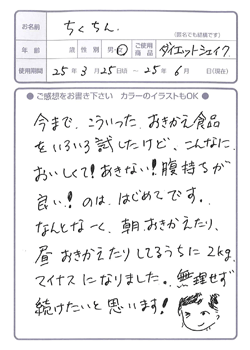 お名前 ちくちん.
(匿名でも結構です)
年齢 歳 性別 男・女 ご使用商品 ダイエットシェイク
使用期間 25年3月25日 〜 25年6月 日(現在)
●ご感想をお書き下さい カラーのイラストもOK●
今まで、こういった、おきかえ食品
をいろいろ試したけど、こんなに
おいしくて!あきない!腹持ちが
良い!のは、はじめてです。
なんとなーく、朝おきかえたり、
昼おきかえたりしてるうちに2kg
マイナスになりました。無理せず
続けたいと思います!